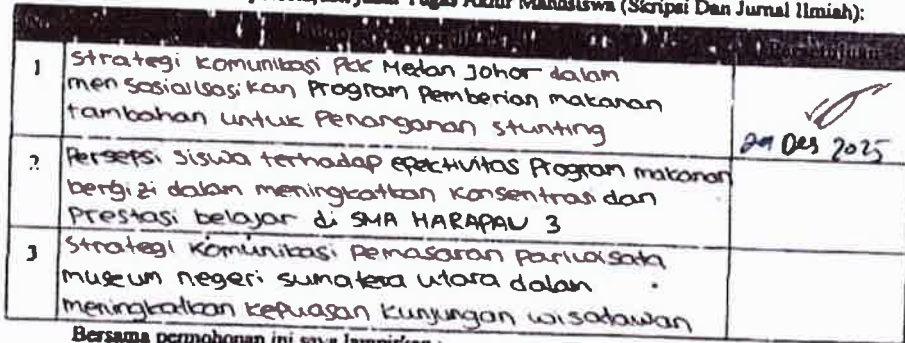 Tugas Akhir Mahasiswa (Skripsi Dan Jurnal Ilmiah):
1 Strategi Komunikasi PKK Medan Johor dalam
mensosialisasikan Program Pemberian makanan
tambahan untuk Penanganan stunting
Des 2025
2 Persepsi siswa terhadap efektivitas Program makanan
bergizi dalam meningkatkan Konsentrasi dan
Prestasi belajar di SMA HARAPAN 3
3 Strategi Komunikasi Pemasaran Pariwisata
museum negeri sumatera utara dalam
meningkatkan kepuasan kunjungan wisatawan
Bersama permohonan ini saya lampirkan